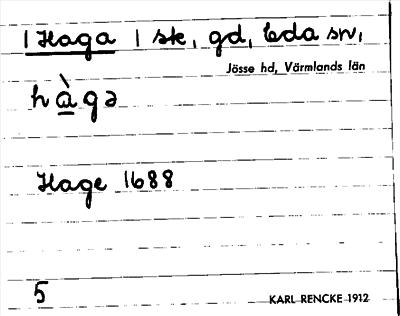 1 Haga 1 sk, gd, Eda sn,
Jösse hd, Värmlands län
hàgə
Hage 1688
5
KARL RENCKE 1912